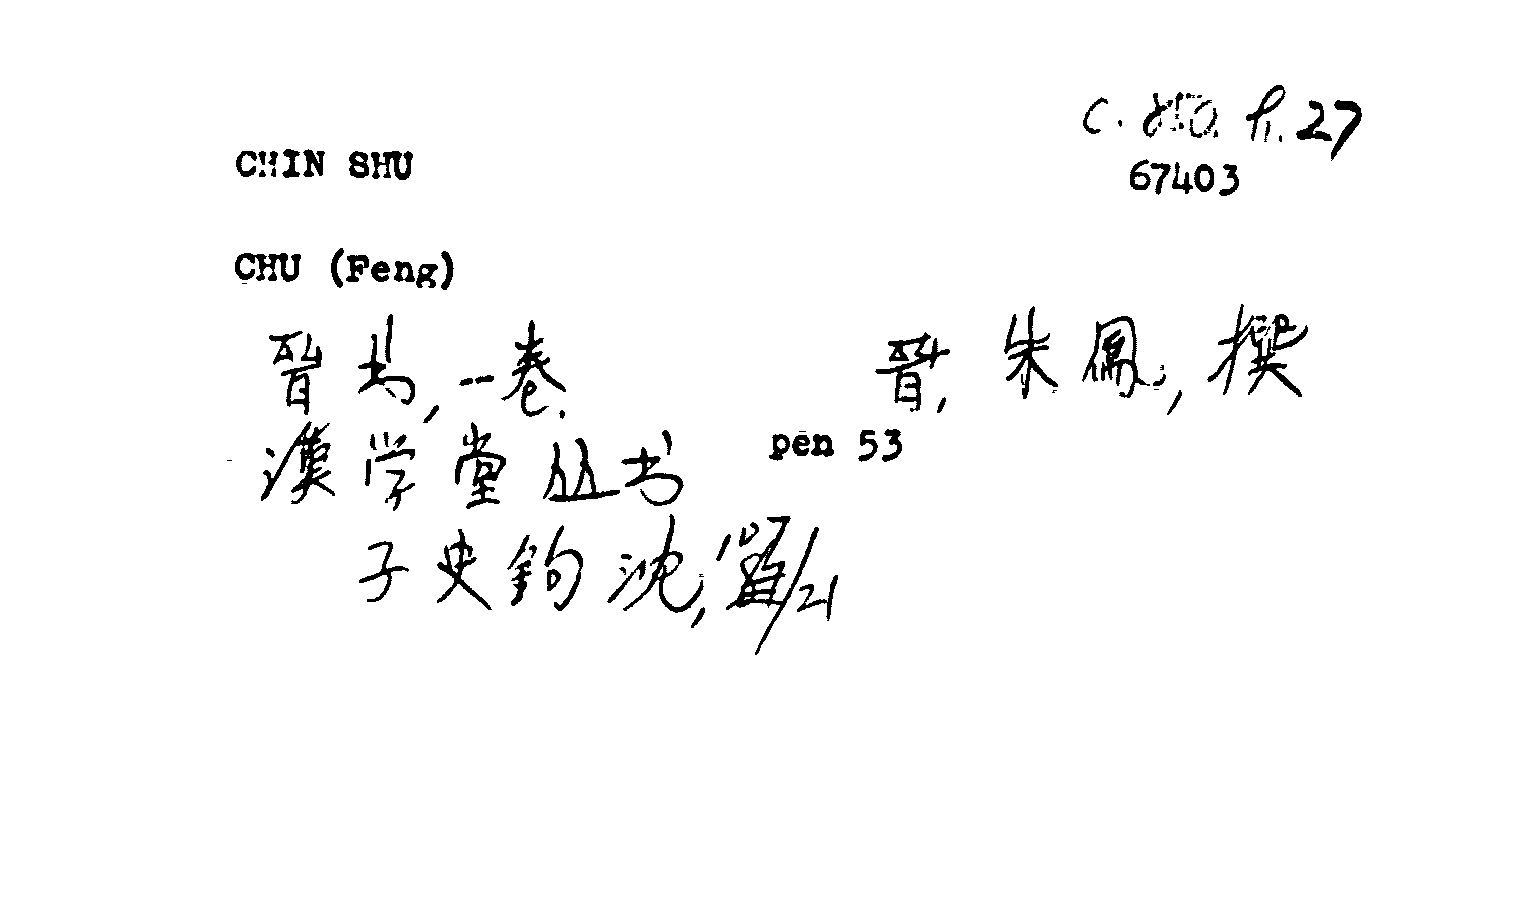 C. 850. P. 27
67403
CHIN SHU
CHU (Feng)
晉书, 一卷. 晉, 朱鳳, 撰
漢学堂丛书 pên 53
子史鈎沈,